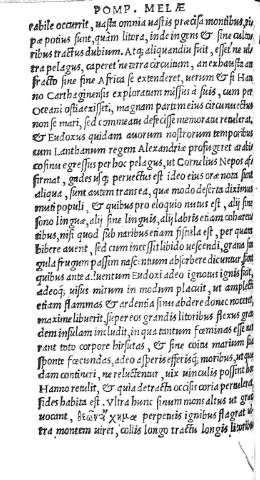 POMP. MELÆ
rabile occurrit, uasta omnia uastis præcisa montibus, ri-
pæ potius sunt, quàm litora, inde ingens & sine culto-
ribus tractus dubium. Atq; aliquandiu fuit, esset ne ul-
tra pelagus, caperet ne terra circuitum, an exhausto
fluctu sine fine Africa se extenderet, uerum & si Han-
no Carthaginensis exploratum missus à suis, cum per
Oceani ostia exisset, magnam partem eius circumuectus
non se mari, sed commeatu defecisse memoratu retulerat,
& Eudoxus quidam auorum nostrorum temporibus
cum Lanthanum regem Alexandriæ profugeret arabi-
co sinu egressus per hoc pelagus, ut Cornelius Nepos af-
firmat, gades usq; peruectus est ideo eius oræ nota sunt
aliqua, sunt autem trans ea, quæ modo deserta diximus
muti populi, & quibus pro eloquio nutus est, alij sine
sono linguæ, alij sine linguis, alij labris etiam cohæren-
tibus, nisi quod sub naribus etiam fistula est, per quam
bibere auent, sed cum incessit libido uescendi, grana sin-
gula frugum passim nascentium absorbere dicuntur, sunt
quibus ante aduentum Eudoxi adeo ignotus ignis fuit,
adeoq; uisus mirum in modum placuit, ut amplecti
etiam flammas & ardentia sinu abdere donec noceret,
maxime libuerit, super eos grandis litoribus flexus gran-
dem insulam includit, in qua tantum fœminas esse nar-
rant toto corpore hirsutas, & sine coitu marium sua
sponte fœcundas, adeo asperis efferisq; moribus, ut quæ-
dam contineri, ne reluctentur, uix uinculis possint hoc
Hanno retulit, & quia detracta occisis coria pertulerat,
fides habita est. Vltra hunc sinum mons altus ut græci
uocant, θεῶν ὄχημα perpetuis ignibus flagrat ul-
tra montem uiret, collis longo tractu longis litoribus